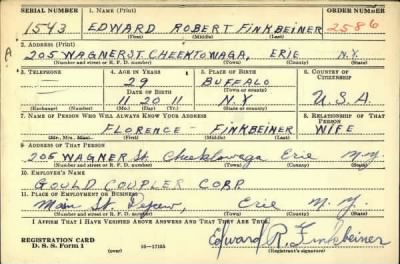 SERIAL NUMBER 1. NAME (Print) ORDER NUMBER
1543 EDWARD ROBERT FINKBEINER 2586
(First) (Middle) (Last)
A
2. ADDRESS (Print)
205 WAGNER ST. CHEEKTOWAGA, ERIE N.Y.
(Number and street or R. F. D. number) (Town) (County) (State)
3. TELEPHONE 4. AGE IN YEARS 5. PLACE OF BIRTH 6. COUNTRY OF CITIZENSHIP
29 BUFFALO
DATE OF BIRTH (Town or county)
11 20 11 N.Y. U.S.A.
(Exchange) (Number) (Mo.) (Day) (Yr.) (State or country)
7. NAME OF PERSON WHO WILL ALWAYS KNOW YOUR ADDRESS 8. RELATIONSHIP OF THAT PERSON
FLORENCE - FINKBEINER WIFE
(Mr., Mrs., Miss) (First) (Middle) (Last)
9. ADDRESS OF THAT PERSON
205 WAGNER St. Cheektowaga Erie N.Y.
(Number and street or R. F. D. number) (Town) (County) (State)
10. EMPLOYER'S NAME
GOULD COUPLER CORP
11. PLACE OF EMPLOYMENT OR BUSINESS
Main St Depew, Erie N.Y.
(Number and street or R. F. D. number) (Town) (County) (State)
I AFFIRM THAT I HAVE VERIFIED ABOVE ANSWERS AND THAT THEY ARE TRUE.
REGISTRATION CARD
D. S. S. FORM 1 (over) 16-17105 Edward R. Finkbeiner
(Registrant's signature)